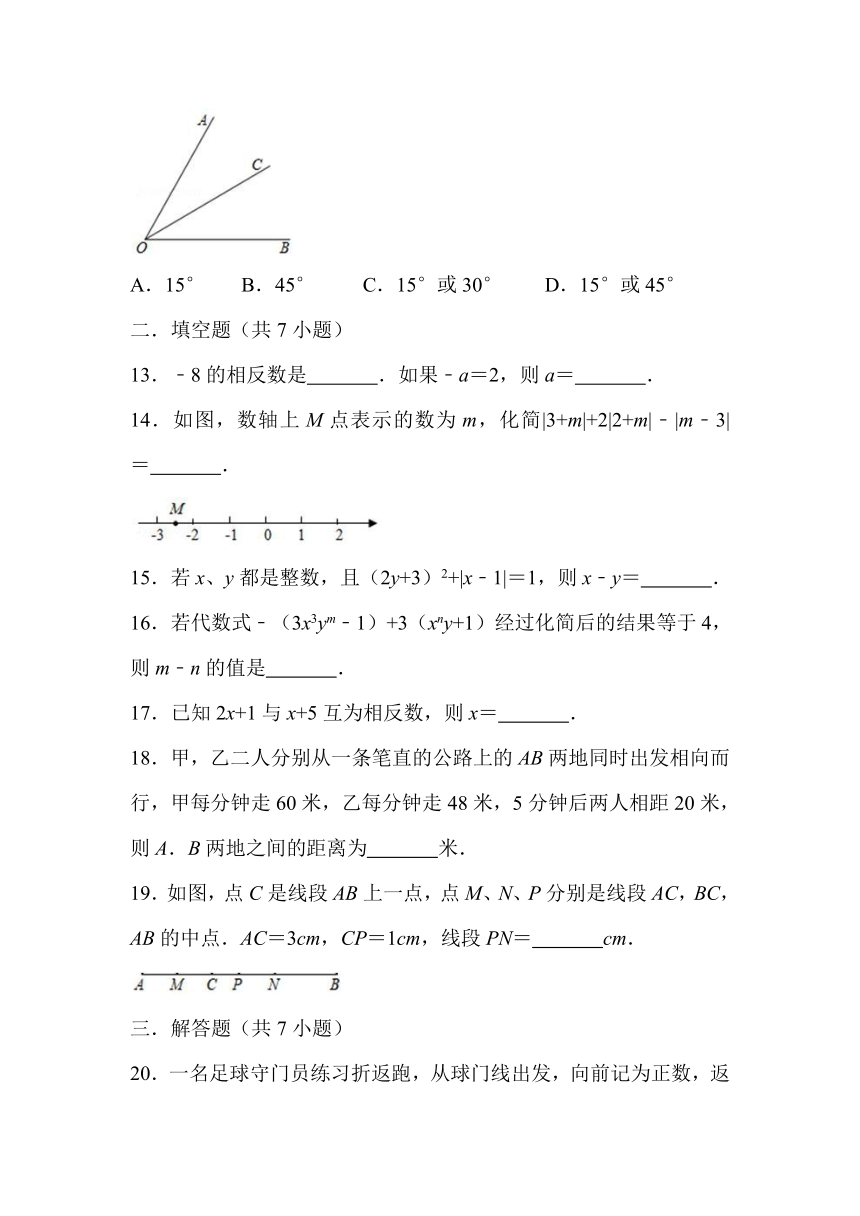 A
C
O
B
A．15° B．45° C．15°或30° D．15°或45°
二．填空题（共7小题）
13．﹣8的相反数是 ．如果﹣a＝2，则a＝ ．
14．如图，数轴上M点表示的数为m，化简|3+m|+2|2+m|﹣|m﹣3|
＝ ．
M
-3 -2 -1 0 1 2
15．若x、y都是整数，且（2y+3）²+|x﹣1|＝1，则x﹣y＝ ．
16．若代数式﹣（3x³yᵐ﹣1）+3（xⁿy+1）经过化简后的结果等于4，
则m﹣n的值是 ．
17．已知2x+1与x+5互为相反数，则x＝ ．
18．甲，乙二人分别从一条笔直的公路上的AB两地同时出发相向而
行，甲每分钟走60米，乙每分钟走48米，5分钟后两人相距20米，
则A．B两地之间的距离为 米．
19．如图，点C是线段AB上一点，点M、N、P分别是线段AC，BC，
AB的中点．AC＝3cm，CP＝1cm，线段PN＝ cm．
A M C P N B
三．解答题（共7小题）
20．一名足球守门员练习折返跑，从球门线出发，向前记为正数，返